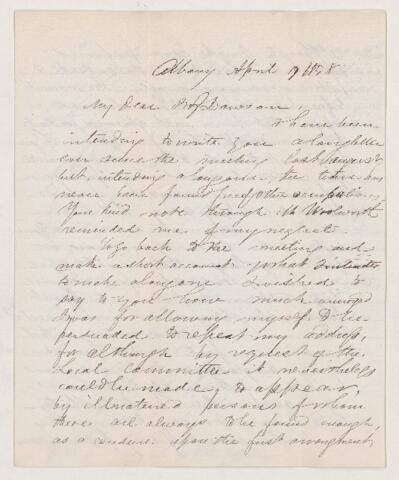 Albany April 9 1858
My Dear Prof Dawson,
I have been
intending to write you a long letter
ever since the meeting last August
but, intending a long one the time has
never been found free of other occupations
Your kind note through Mr Woolworth
reminded me of my neglect.
To go back to the meeting and
make a short account of what I intended
to make a long one I wished to
say to you how much annoyed
I was for allowing myself to be
persuaded to repeat my address,
for although by request of the
Local Committee it nevertheless
could be made, to appear,
by illnatured persons of whom
there are always to be found enough,
as a censure upon the first arrangement